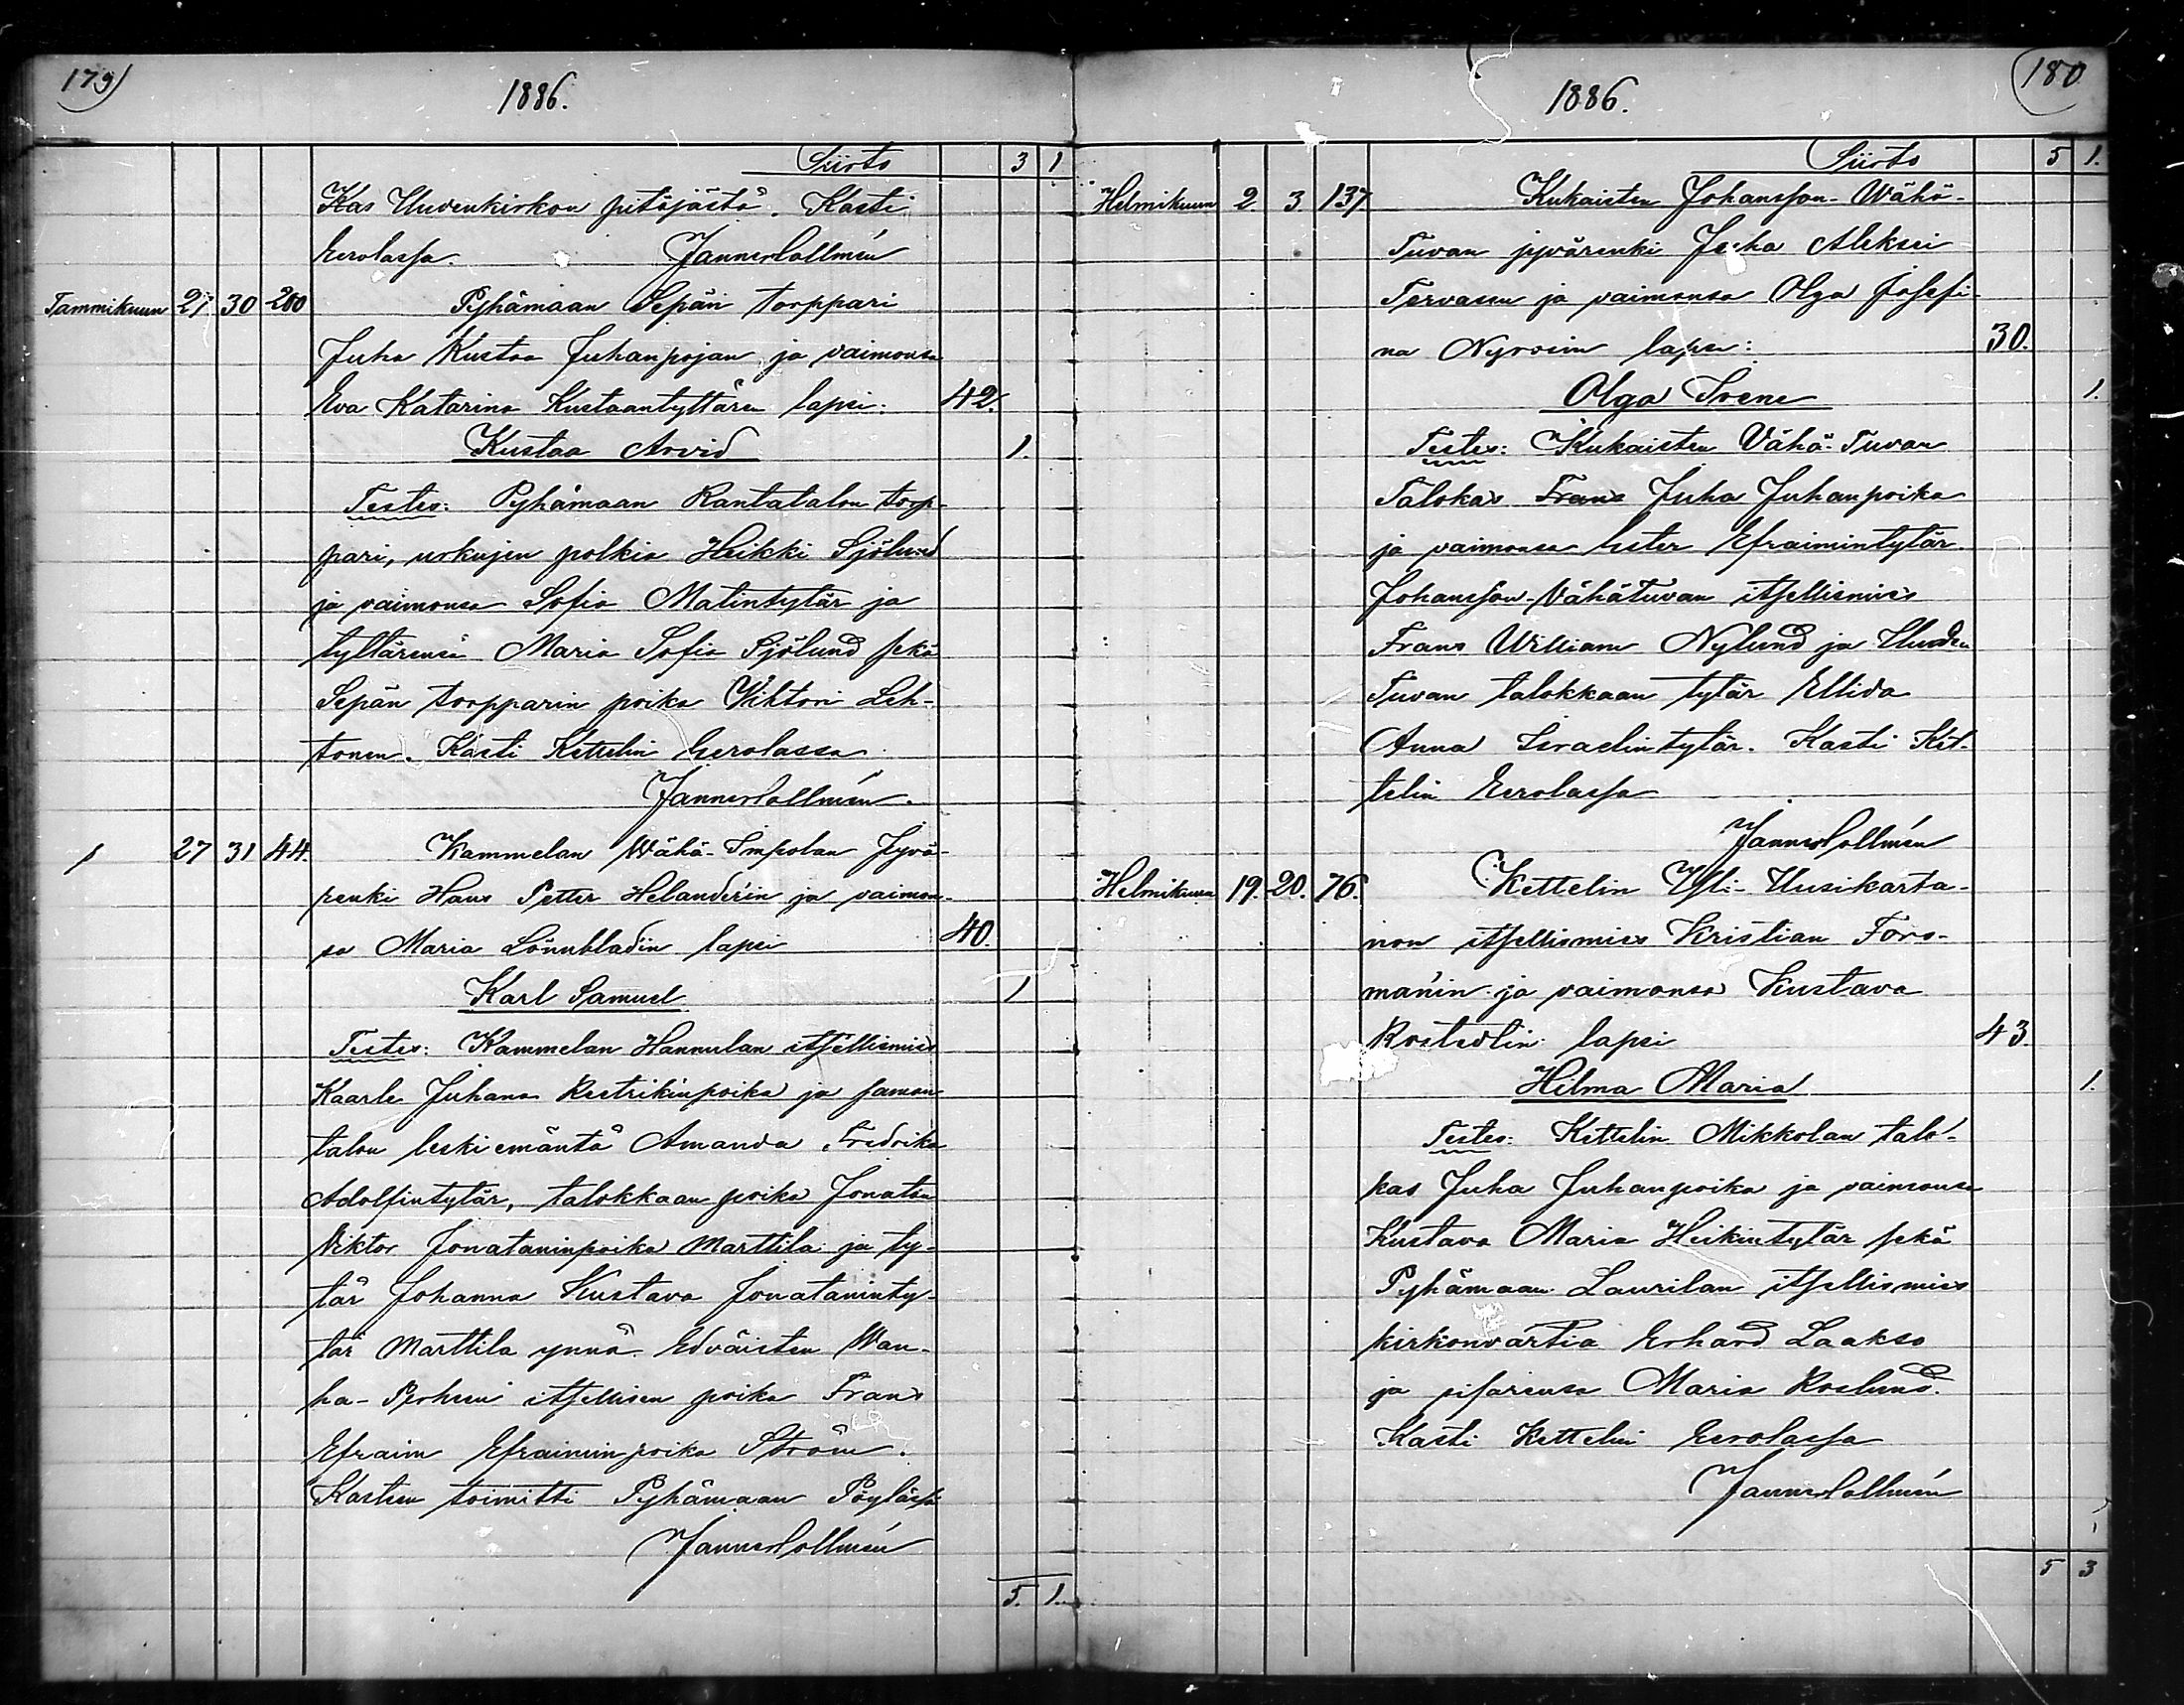 179)
1886.
Siirto 3 1
Kas Uudenkirkon pitäjästä. Kasti
Eerolassa. Janne Collmén
Tammikuun 27 30 200 Pyhämaan Sepän torppari
Juha Kustaa Juhanpojan ja vaimonsa
Eva Katarina Kustaantyttären lapsi: 42.
Kustaa Arvid 1.
Testes: Pyhämaan Rantatalon torp-
pari, urkujen polkia Heikki Sjölund
ja vaimonsa Sofia Matintytär ja
tyttärensä Maria Sofia Sjölund sekä
Sepän torpparin poika Viktori Leh-
tonen. Kasti Kettelin Eerolassa
Janne Collmén.
27 31 44. Kammelan Wähä-Simpolan Jyvä-
renki Hans Petter Helander'in ja vaimon-
sa Maria Lönnblad'in lapsi 40.
Karl Samuel 1
Testes: Kammelan Hannulan itsellismies
Kaarle Juhana Restrikinpoika ja saman
talon leskiemäntä Amanda Fredrika
Adolfintytär, talokkaan poika Jonatan
Viktor Jonataninpoika Marttila ja ty-
tär Johanna Kustava Jonataninty-
tär Marttila ynnä Edväisten Wan-
ha-Perheen itsellisen poika Frans
Efraim Efraiminpoika Ström.
Kasteen toimitti Pyhämaan Pöylässä
Janne Collmén
5. 1.
180
1886.
Siirto 5 1.
Helmikuun 2. 3. 137. Kukaisten Johansson-Wähä-
Tuvan jyvärenki Juha Aleksei
Tervasen ja vaimonsa Olga Josefi-
na Nyroosin lapsi: 30.
Olga Irene 1.
Testes: Kukaisten Vähä-Tuvan
Talokas Frans Juha Juhanpoika
ja vaimonsa Ester Efraimintytär
Johansson-Vähätuvan itsellismies
Frans William Nylund ja Uuden
Tuvan talokkaan tytär Ellida
Anna Israelintytär. Kasti Ket-
telin Eerolassa
Janne Collmén
Helmikuun 19. 20. 76. Kettelin Yli-Uusikarta-
non itsellismies Kristian Fors-
man'in ja vaimonsa Kustava
Rostedtin lapsi 43.
Hilma Maria 1.
Testes: Kettelin Mikkolan talo-
kas Juha Juhanpoika ja vaimonsa
Kustava Maria Heikintytär sekä
Pyhämaan Laurilan itsellismies
kirkonvartia Erhard Laakso
ja sisarensa Maria Roslund.
Kasti Kettelin Eerolassa
Janne Collmén
5 3